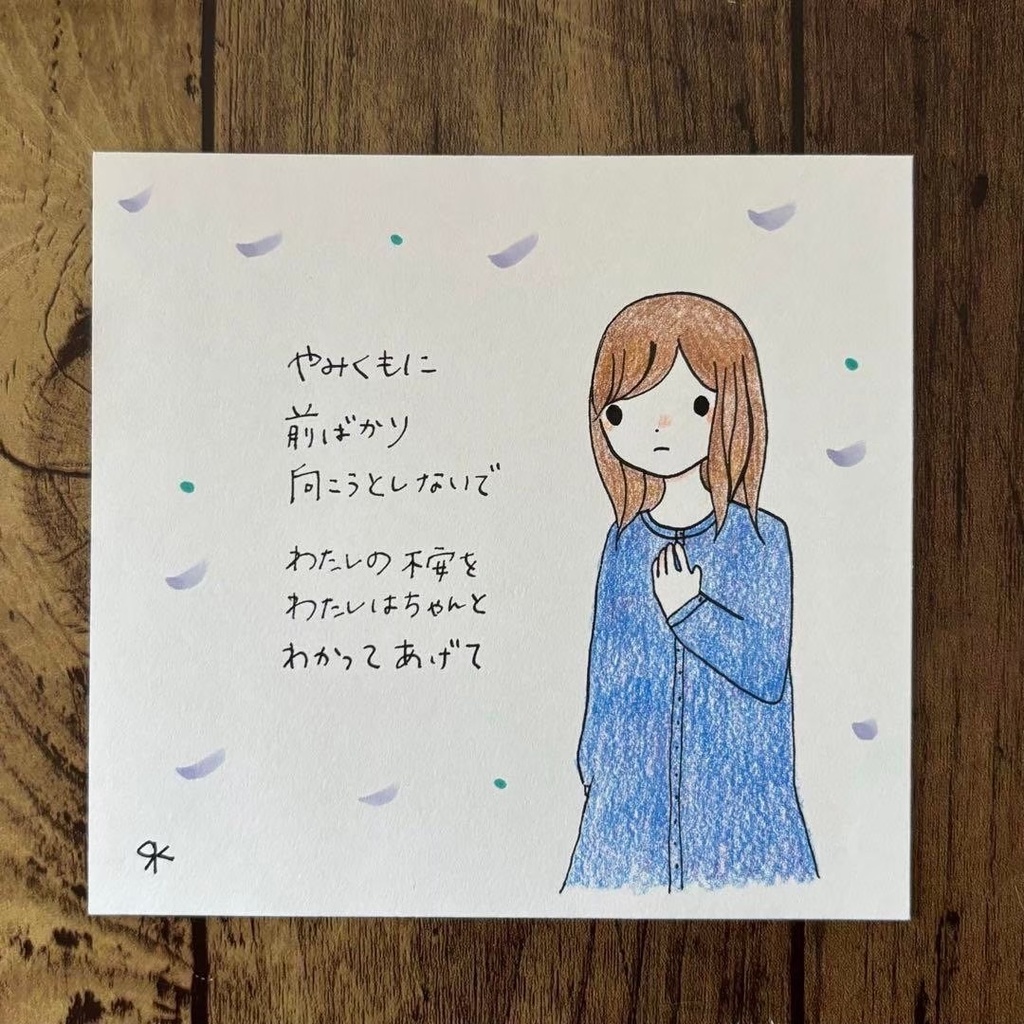 やみくもに
前ばかり
向こうとしないで
わたしの不安を
わたしはちゃんと
わかってあげて